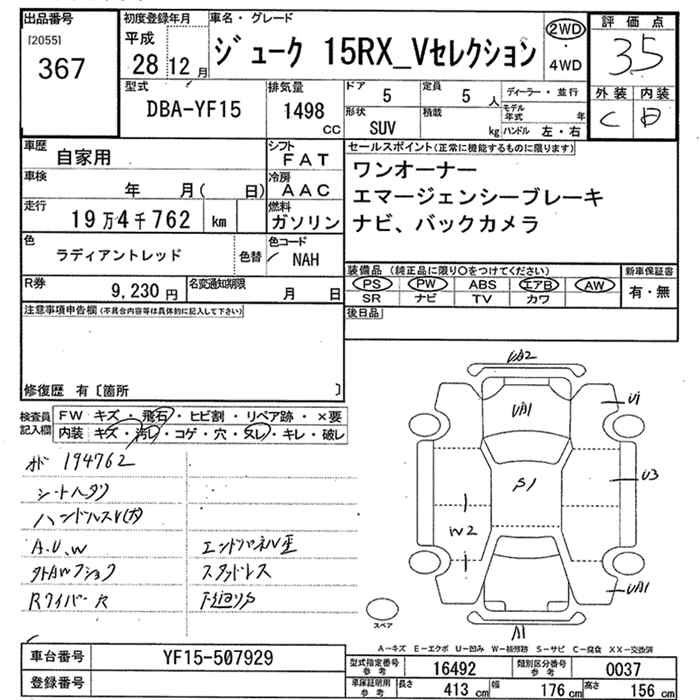 出品番号
[2055]
367
初度登録年月
平成
28 12 月
車名・グレード
ジューク 15RX_Vセレクション
2WD
・
4WD
評価点
3.5
外装 内装
C
型式
DBA-YF15
排気量
1498
CC
ドア
5
定員
5 人
形状
SUV
積載
kg
ディーラー・並行
モデル年式 年
ハンドル 左・右
車歴
自家用
シフト
FAT
車検
年 月( 日)
冷房
AAC
走行
19万4千762 km
燃料
ガソリン
色
ラディアントレッド
色替
色コード
NAH
R券
9,230 円
名変通知期限
月 日
セールスポイント(正常に機能するものに限ります)
ワンオーナー
エマージェンシーブレーキ
ナビ、バックカメラ
装備品 (純正品に限り○をつけてください)
PS PW ABS エアB AW
SR ナビ TV カワ
新車保証書
有・無
後日品
注意事項申告欄(不具合内容等は具体的に記入して下さい)
修復歴 有〔箇所 〕
検査員記入欄
FW キズ・飛石・ヒビ割・リペア跡・×要
内装 キズ・汚レ・コゲ・穴・スレ・キレ・破レ
194762
シートヘタリ
A.U.W
スタッドレス
Rワイパー
UA2
UA1
U1
S1
U3
W2
UA1
A1
スペア
A-キズ E-エクボ U-凹み W-補修跡 S-サビ C-腐食 XX-交換済
車台番号
YF15-507929
登録番号
型式指定番号
参考
16492
類別区分番号
参考
0037
車庫証明用
参考
長さ
413 cm
幅
176 cm
高さ
156 cm